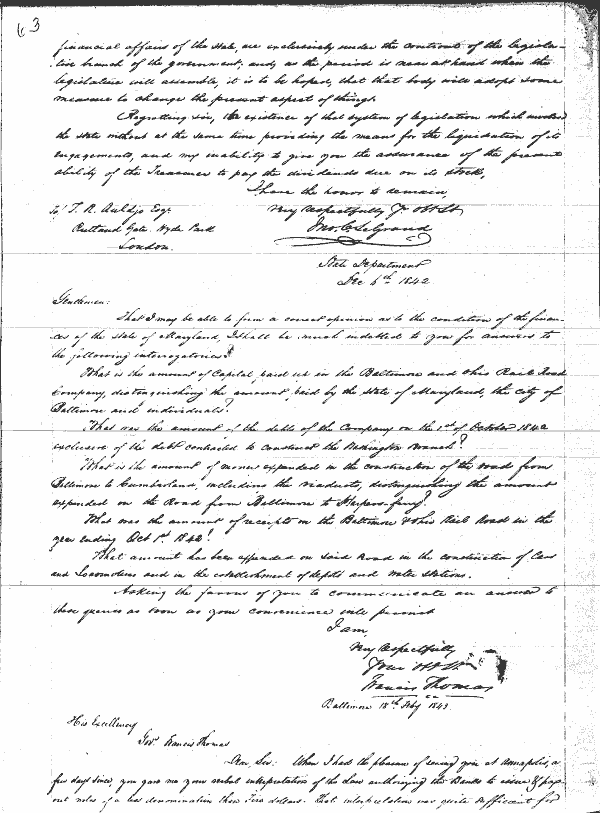 63
financial affairs of the state, are exclusively under the controul of the legisla-
-tive branch of the government; and, as the period is near at hand when the
legislature will assemble, it is to be hoped, that that body will adopt some
measure to change the present aspect of things.
Regretting sir, the existence of that system of legislation which involved
the state without at the same time providing the means for the liquidation of its
engagements, and my inability to give you the assurance of the present
ability of the Treasurer to pay the dividends due on its stock,
I have the honor to remain,
To T. R. Auldjo Esqr. Very respectfully Yr Obt St
Rutland Gate Hyde Park Jno. C. LeGrand
London.
State Department
Dec 6th 1842
Gentlemen:
That I may be able to form a correct opinion as to the condition of the finan-
ces of the state of Maryland, I shall be much indebted to you for answers to
the following interrogatories?
What is the amount of Capital, paid us in the Baltimore and Ohio Rail Road
Company, distinguishing the amount, paid by the State of Maryland, the city of
Baltimore and individuals.
What was the amount of the debts of the Company on the 1st of October 1842
exclusive of the debt contracted to construct the Washington Branch?
What is the amount of money expended in the construction of the road from
Baltimore to Cumberland, including the viaducts, distinguishing the amount
expended on the Road from Baltimore to Harpers-ferry?
What was the amount of receipts on the Baltimore & Ohio Rail Road in the
year ending Oct 1st 1842!
What amount has been expended on said Road in the construction of Cars
and Locomotives and in the establishment of depots and water stations.
Asking the favour of you to communicate an answer to
these queries as soon as your convenience will permit
I am,
Very respectfully
Your Obt St
Francis Thomas
Baltimore 18th Feby 1843
His Excellency
Gov. Francis Thomas
Dear Sir: When I had the pleasure of seeing you at Annapolis, a
few days since, you gave me your verbal interpretation of the Law authorizing the Banks to issue & pay
out notes of a less denomination than Five dollars. That interpretation was quite sufficient for